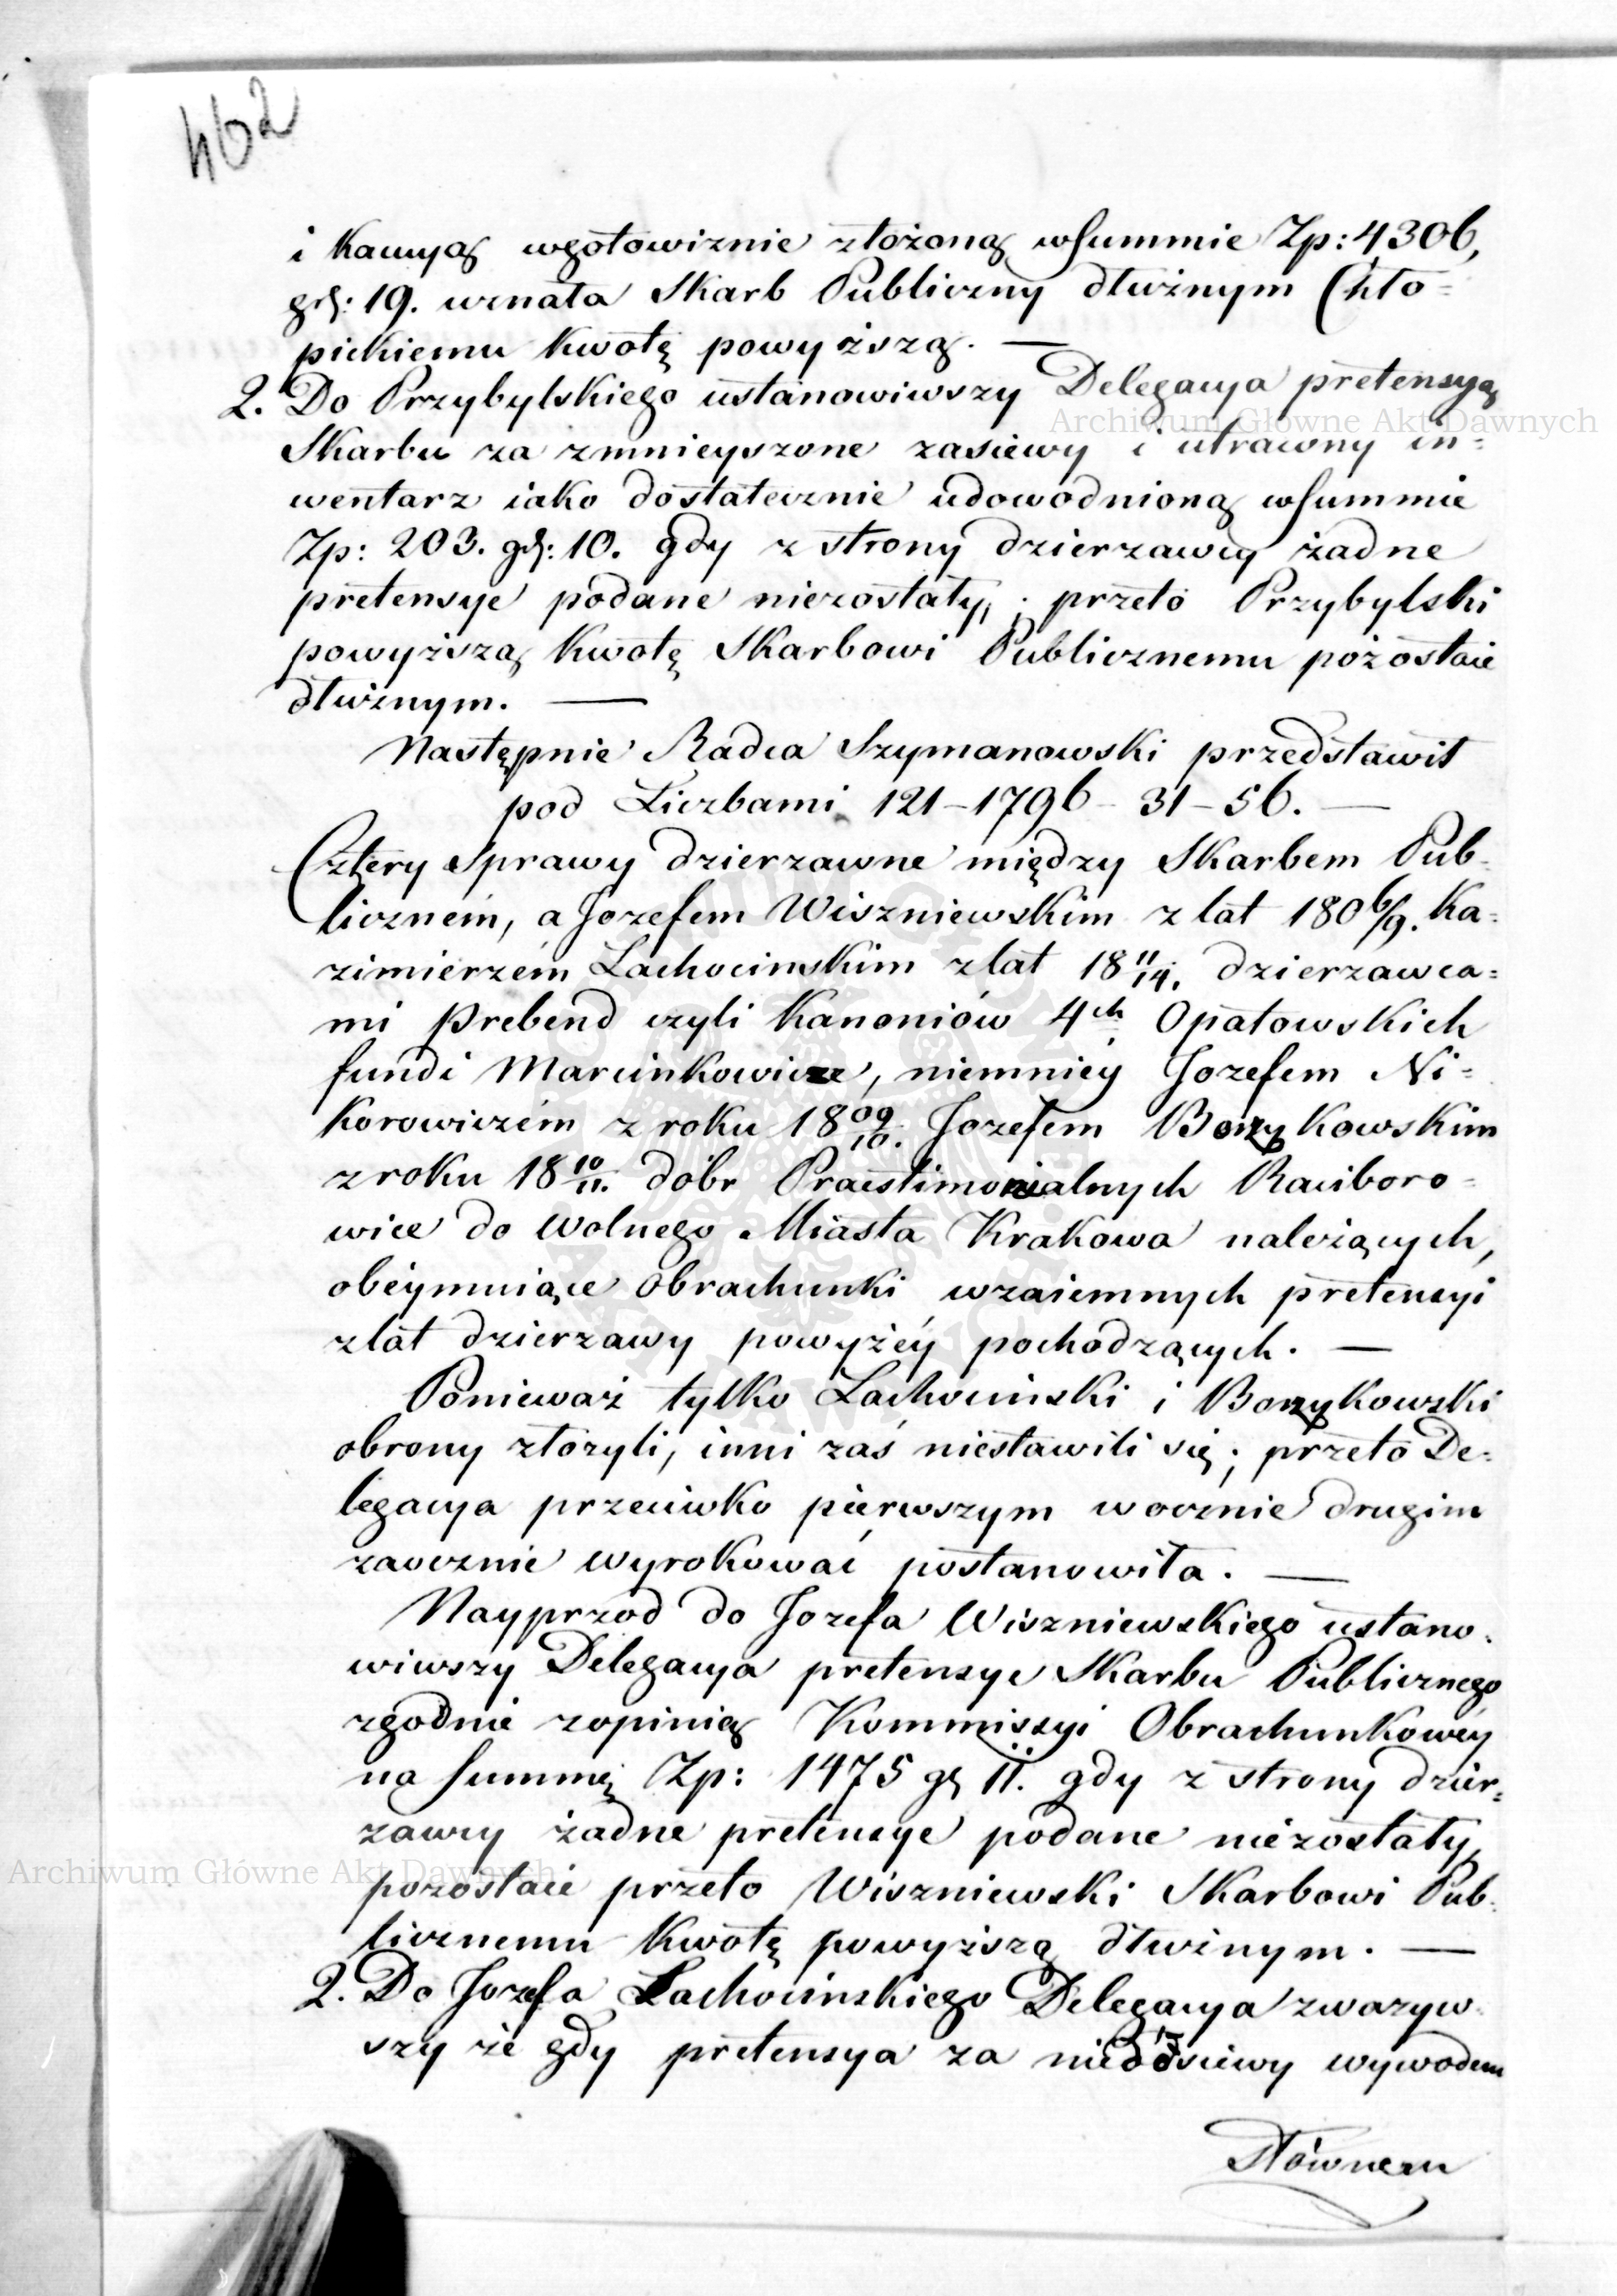 462
i Kaucyą wgotowiznie złożoną wsummie Zp: 4306,
gr: 19. uznała Skarb Publiczny dłużnym Chło=
pickiemu Kwotę powyższą. —
2. Do Przybylskiego ustanowiwszy Delegacya pretensyą
Skarbu za zmnieyszone zasiewy i utracony in=
wentarz iako dostatecznie udowodnioną wsummie
Zp: 203. gr: 10. gdy z strony dzierzawcy żadne
pretensye podane niezostały, ; przeto Przybylski
powyższą Kwotę Skarbowi Publicznemu pozostaie
dłużnym. —
Następnie Radca Szymanowski przedstawił
pod Liczbami 121 – 1796 – 31 – 56. —
Cztery Sprawy dzierzawne między Skarbem Pub=
licznem, a Jozefem Wiszniewskim z lat 1806/9. Ka=
zimierzém Lachocinskim z lat 18 11/14. dzierzawca=
mi Prebend czyli Kanoniów 4ch Opatowskich
fundi Marcinkowice, niemniéy Jozefem Ni=
Korowiczém z roku 18 09/10. Jozefem Bonykowskim
z roku 18 10/11. dóbr Praestimonialnych Raciboro=
wice do Wolnego Miasta Krakowa należących,
obéymuiące obrachunki wzaiemnych pretensyi
z lat dzierzawy powyżéy pochodzących. —
Ponieważ tylko Lachocinski i Bonykowski
obrony złozyli, inni zaś niestawili się ; przeto De=
legacya przeciwko pierwszym wocznie drugim
zaocznie wyrokować postanowiła. —
Nayprzod do Jozefa Wiszniewskiego ustano=
wiwszy Delegacya pretensye Skarbu Publicznego
zgodnie zopinią Kommissyi Obrachunkowéy
na summę Zp: 1475 gr 11. gdy z strony dzier=
zawcy żadne pretensye podane niezostały,
pozostaie przeto Wiszniewski Skarbowi Pub=
licznemu Kwotę powyższą dłużnym. —
2. Do Jozefa Lachocinskiego Delegacya zwazyw=
szy że gdy pretensya za niedosiewy wywodem
Słownem
Archiwum Główne Akt Dawnych
Archiwum Główne Akt Dawnych